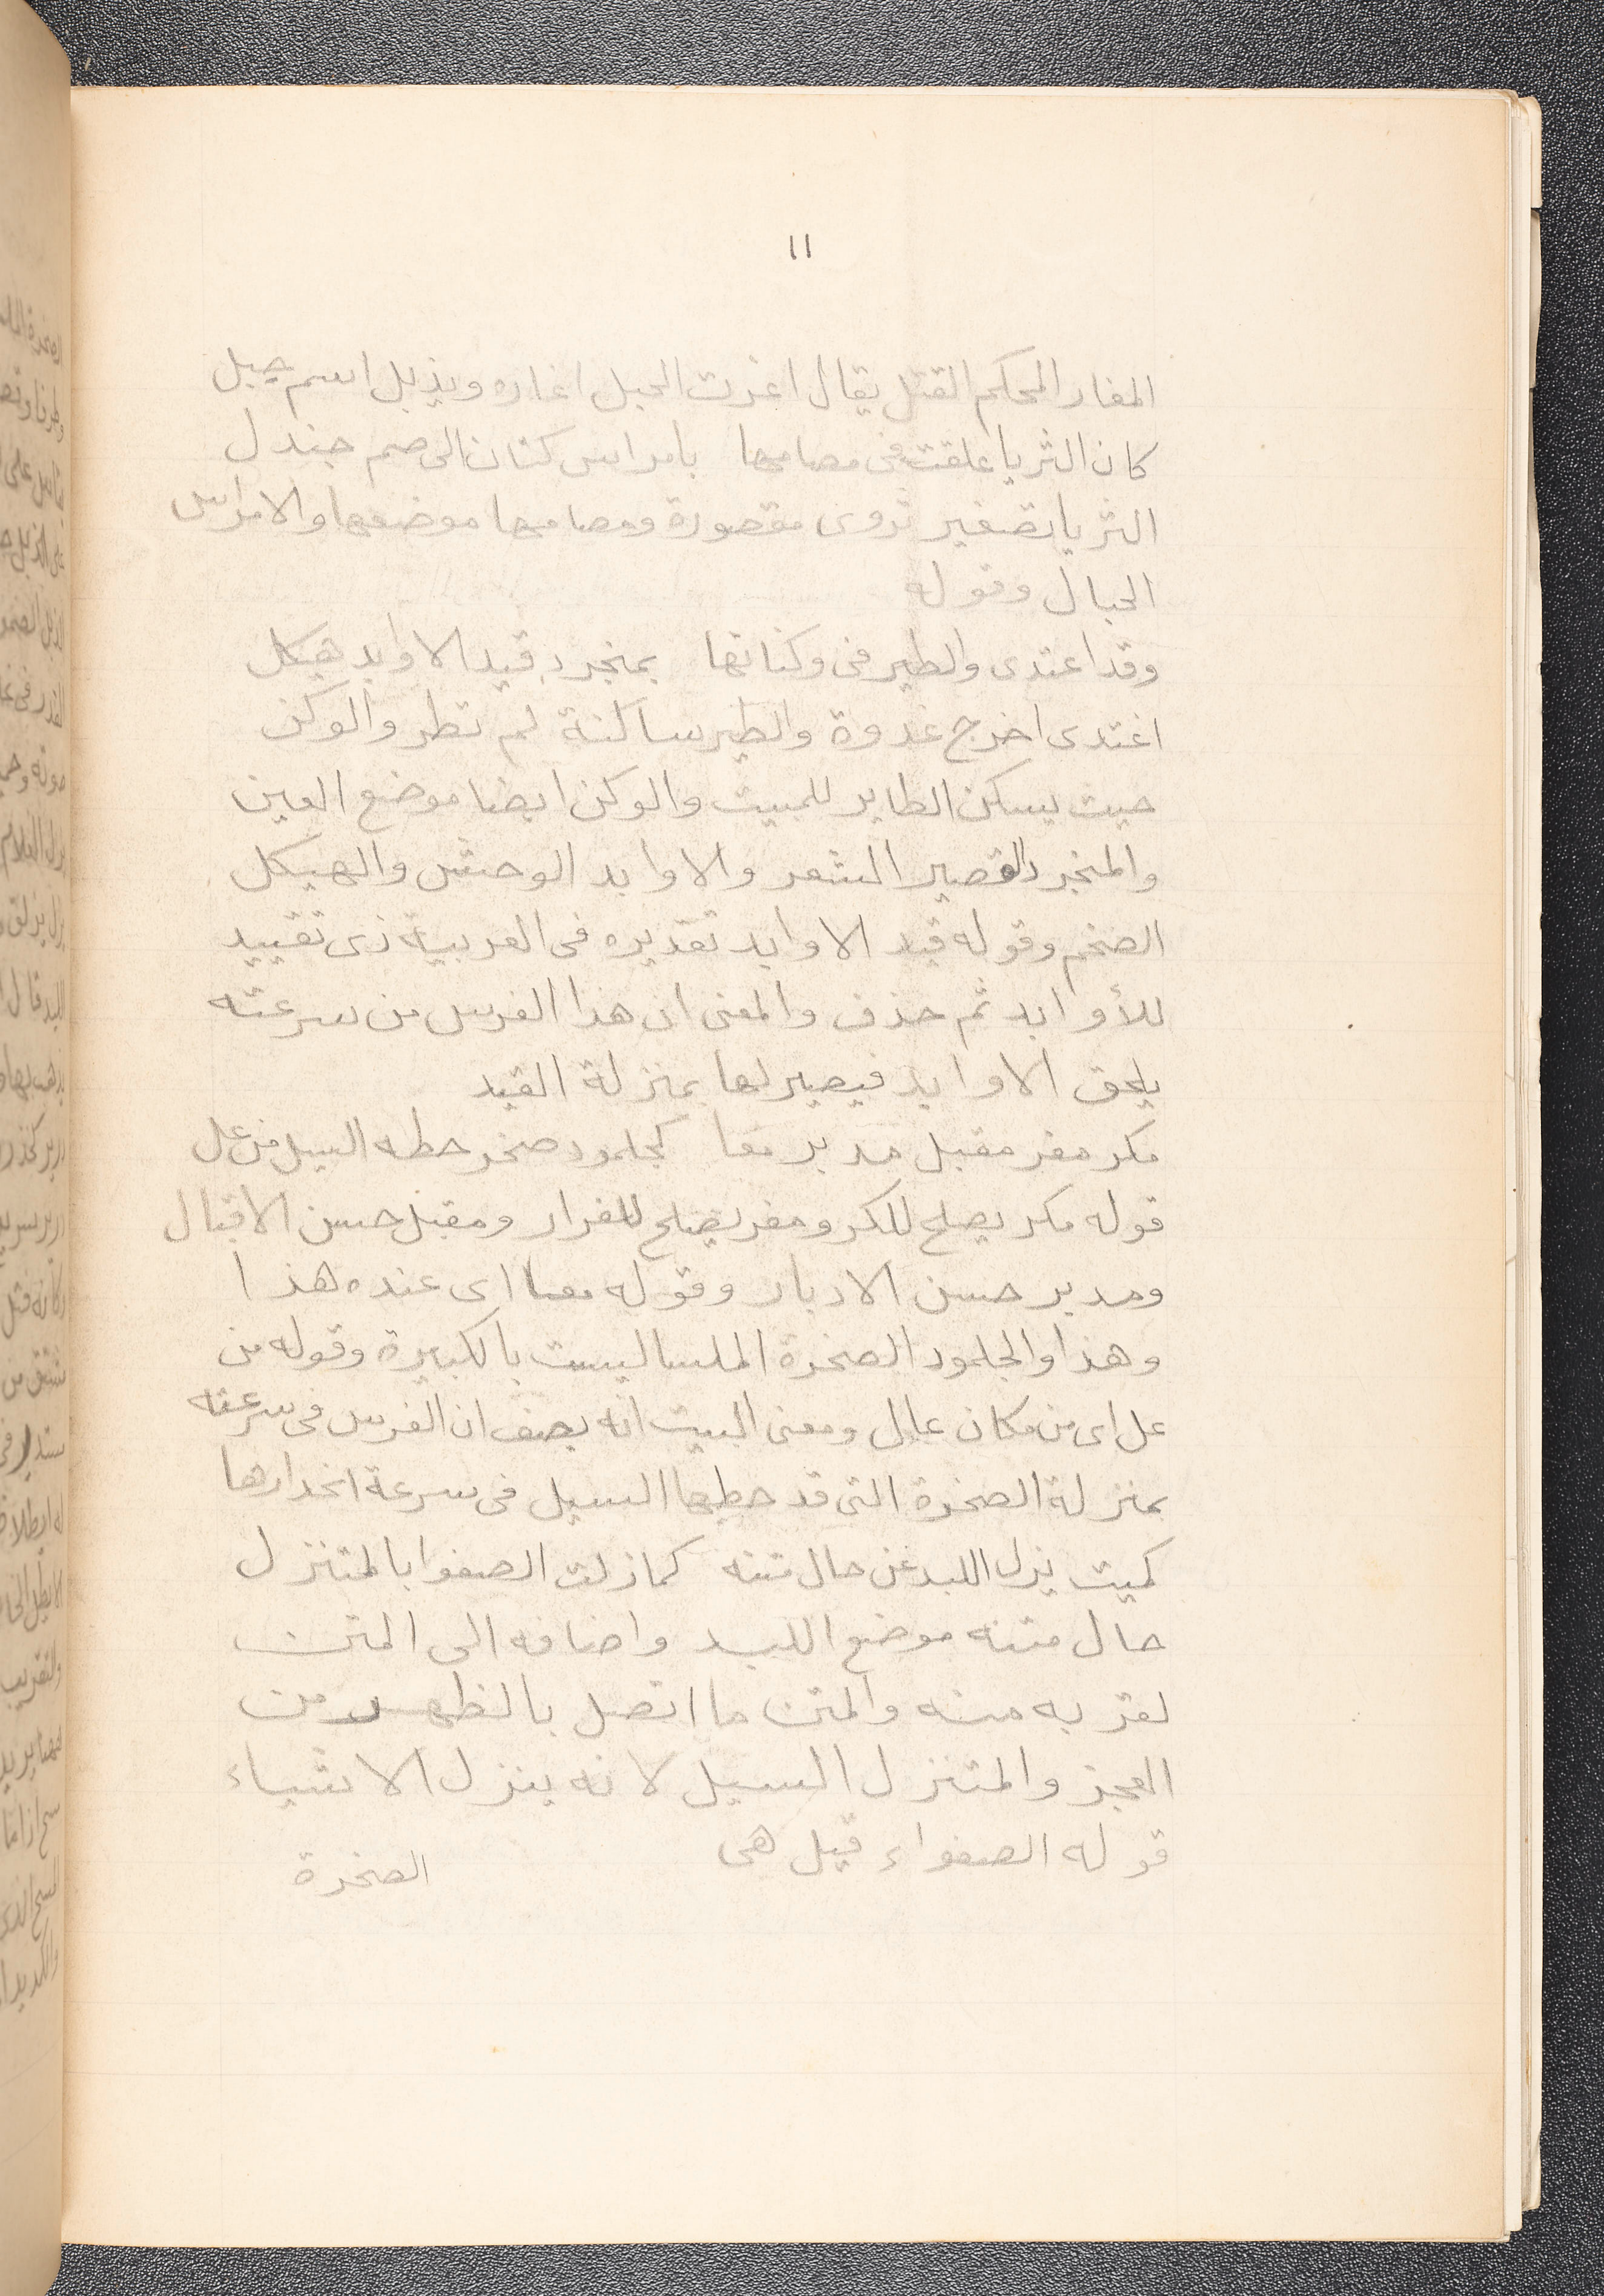 ١١
المغار المحكم الفتل يقال اغرت الحبل اغاره ويذبل اسم جبل
كان الثريا علقت فى مصامها بامراس كتان الى صم جندل
الثريا تصغير ثروى مقصورة ومصامها موضعها والامراس
الحبال وقوله
وقد اغتدى والطير فى وكناتها بمنجرد قيد الاوابد هيكل
اغتدى اخرج غدوة والطير ساكنة لم تطر والوكن
حيث يسكن الطاير للمبيت والوكن ايضا موضع العين
والمنجرد القصير الشعر والاوابد الوحش والهيكل
الضخم وقوله قيد الاوابد تقديره فى العربية ذى تقييد
للأوابد ثم حذف والمعنى ان هذا الفرس من سرعته
يلحق الاوابد فيصير لها بمنزلة القيد
مكر مفر مقبل مدبر معا كجلمود صخر حطه السيل من عل
قوله مكر يصلح للكر ومفر يصلح للفرار ومقبل حسن الاقبال
ومدبر حسن الادبار وقوله معا اى عنده هذا
وهذا والجلمود الصخرة الملسا ليست بالكبيرة وقوله من
عل اى من مكان عال ومعنى البيت انه يصف ان الفرس فى سرعته
بمنزلة الصخرة التى قد حطها السيل فى سرعة انحدارها
كميت يزل اللبد عن حال متنه كما زلت الصفوا بالمتنزل
حال متنه موضع اللبد واضافه الى المتن
لقربه منه والمتن ما اتصل بالظهر من
العجز والمتنزل السيل لانه ينزل الاشياء
قوله الصفواء قيل هى
الصخرة